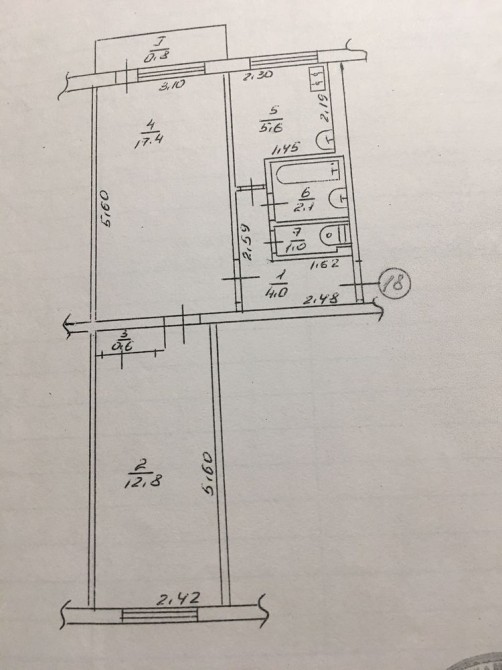 I
0.8
3.10
2.30
5
5.6
2.19
4
17.4
1.45
6
2.1
5.60
2.59
7
1.0
1.62
1
4.0
2.48
18
3
0.6
2
12.8
5.60
2.42